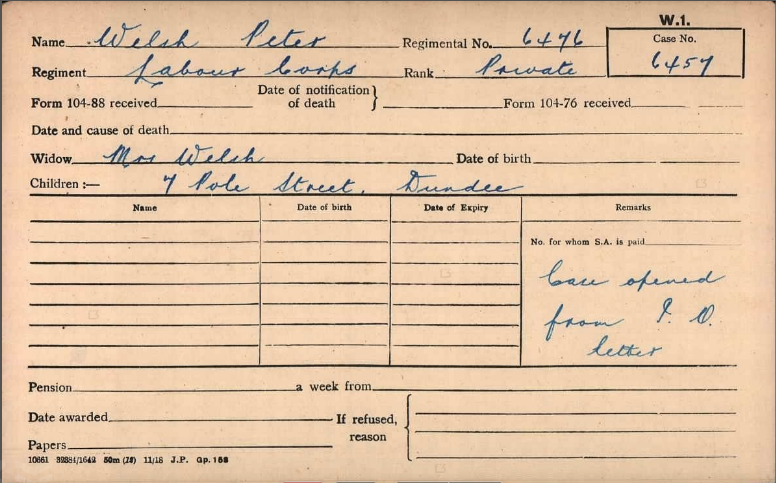 W.1.
Name Welsh Peter Regimental No. 6476 Case No.
Regiment Labour Corps Rank Private 6457
Form 104-88 received Date of notification of death } Form 104-76 received
Date and cause of death
Widow Mrs Welsh Date of birth
Children :— 7 Pole Street, Dundee
Name Date of birth Date of Expiry Remarks
No. for whom S.A. is paid
Case opened
from P. O.
letter
Pension a week from
Date awarded If refused, reason {
Papers
10661 32884/1642 50m (18) 11/18 J.P. Gp. 158